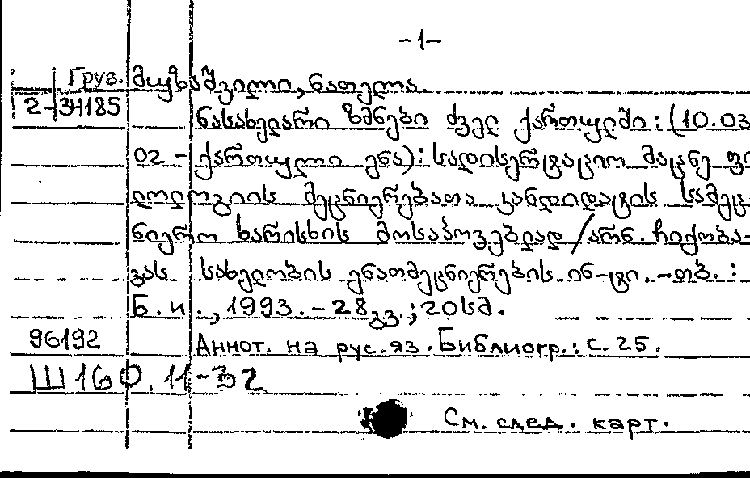 -1-
Груз. მუზაშვილი, ნათელა
2-31185
ნასახელარი ზმნები ძველ ქართულში: (10.03
02 - ქართული ენა): სადისერტაციო მაცნე ფი
ლოლოგიის მეცნიერებათა კანდიდატის სამეც
ნიერო ხარისხის მოსაპოვებლად / არნ. ჩიქობა-
ვას სახელობის ენათმეცნიერების ინ-ტი. -თბ. :
Б. и., 1993. - 28გვ.; 20სმ.
96192 Аннот. на рус. яз. Библиогр.: с. 25.
Ш160.11-32
См. след. карт.